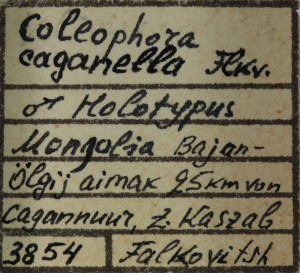 Coleophora
caganella Flkv.
♂ Holotypus
Mongolia Bajan-
Ölgij aimak 25 km von
Cagannuur, Z. Kaszab
3854 Falkovitsh